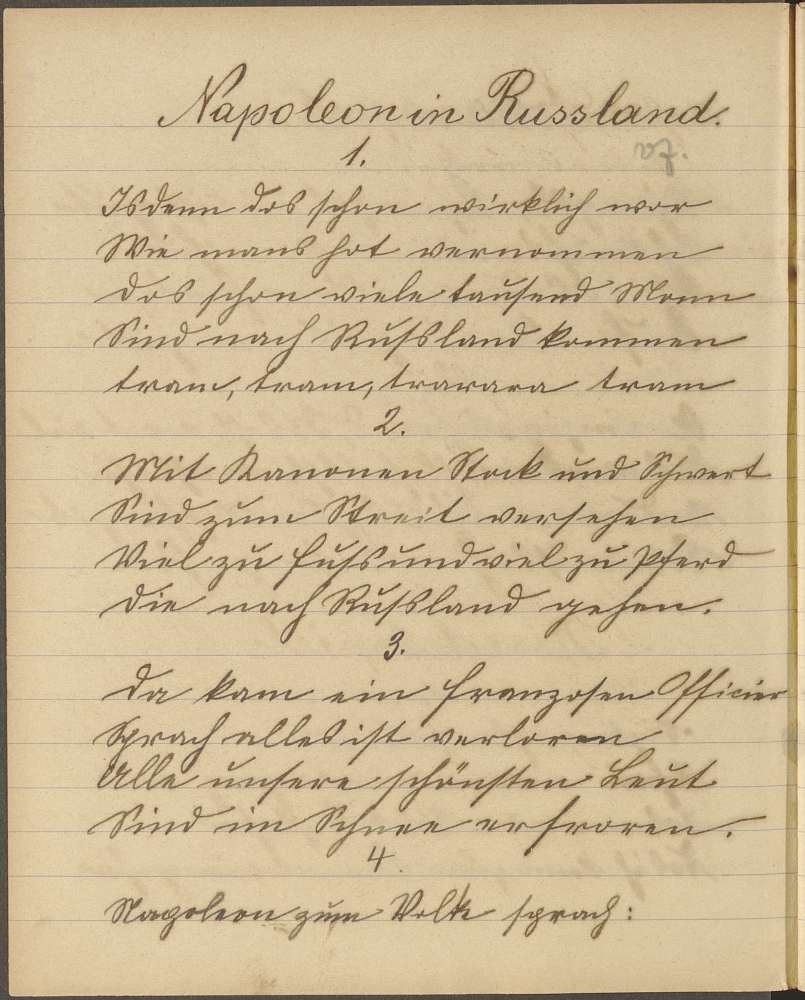 Napoleon in Russland.
1.
Is denn das schon wirklich war
Wie mans hat vernommen
das schon viele tausend Mann
Sind nach Russland kommen
tram, tram, trarara tram
2.
Mit Kanonen Stock und Schwert
Sind zum Streit versehen
Viel zu fuss und viel zu Pferd
die nach Russland gehen.
3.
da kam ein franzosen Officier
Sprach alles ist verloren
Alle unsere schönsten Leut
Sind im Schnee erfroren.
4.
Napoleon zum Volk sprach: